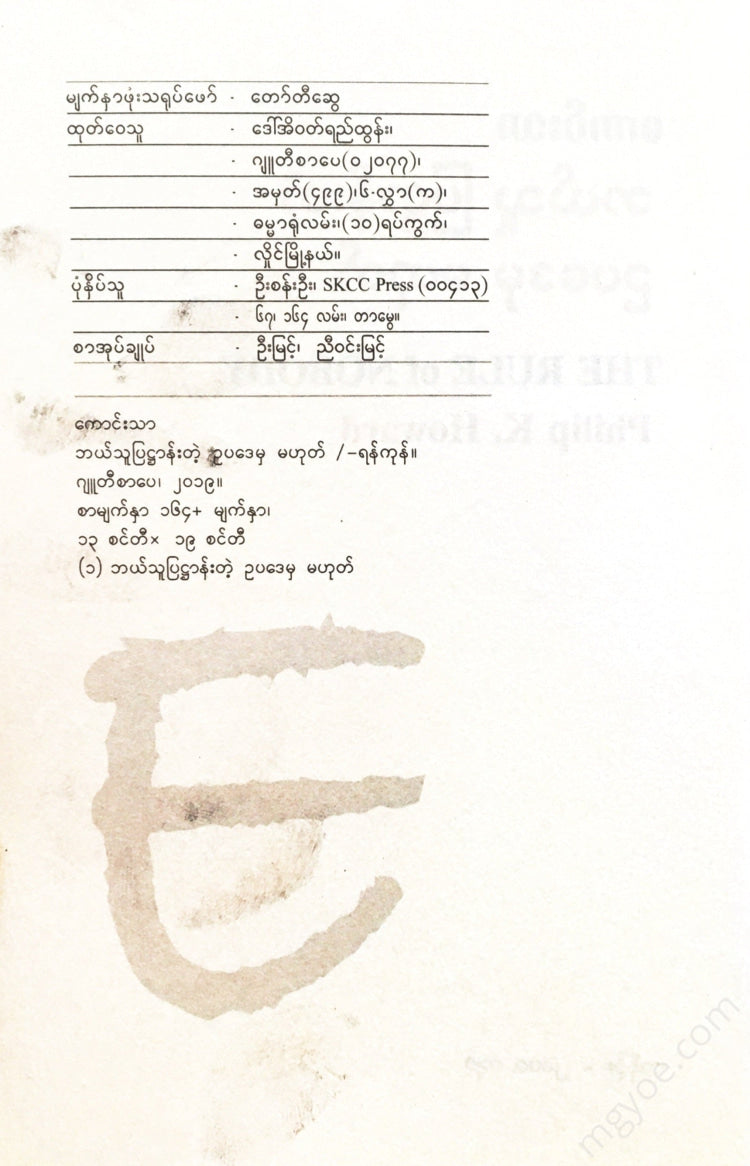 မျက်နှာဖုံးသရုပ်ဖော် - တော်တီဆွေ
ထုတ်ဝေသူ - ဒေါ်အိဝတ်ရည်ထွန်း၊
- ဂျူတီစာပေ(၀၂၀၇၇)၊
- အမှတ်(၄၉၉)၊၆-လွှာ(က)၊
- ဓမ္မာရုံလမ်း၊(၁၀)ရပ်ကွက်၊
- လှိုင်မြို့နယ်။
ပုံနှိပ်သူ - ဦးစန်းဦး၊ SKCC Press (၀၀၄၁၃)
- ၆၇၊ ၁၆၄ လမ်း၊ တာမွေ။
စာအုပ်ချုပ် - ဦးမြင့်၊ ညီဝင်းမြင့်
ကောင်းသာ
ဘယ်သူပြဋ္ဌာန်းတဲ့ ဥပဒေမှ မဟုတ် /-ရန်ကုန်။
ဂျူတီစာပေ၊ ၂၀၁၉။
စာမျက်နှာ ၁၆၄+ မျက်နှာ၊
၁၃ စင်တီ× ၁၉ စင်တီ
(၁) ဘယ်သူပြဋ္ဌာန်းတဲ့ ဥပဒေမှ မဟုတ်
THE RULE of NOBODY
Philip K. Howard
mgyoe.com